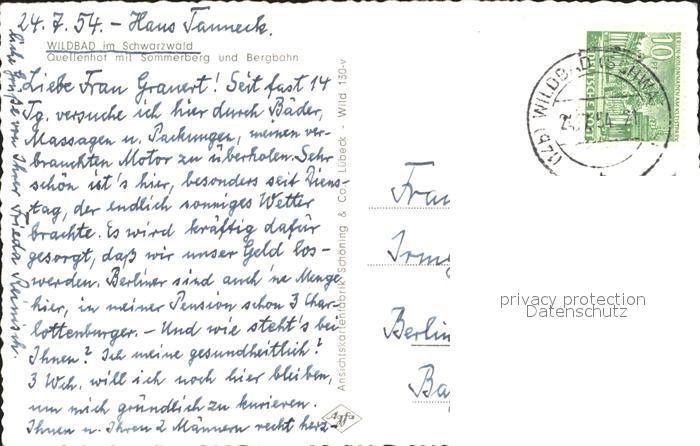 24.7.54. - Haus Tanneck.
WILDBAD im Schwarzwald
Quellenhof mit Sommerberg und Bergbahn
Liebe Frau Granert! Seit fast 14
Tg. versuche ich hier durch Bäder,
Massagen u. Packungen, meinen ver-
brauchten Motor zu überholen. Sehr
schön ist's hier, besonders seit Diens-
tag, der endlich sonniges Wetter
brachte. Es wird kräftig dafür
gesorgt, daß wir unser Geld los-
werden. Berliner sind auch 'ne Menge
hier, in meiner Pension schon 3 Char-
lottenburger. - Und wie steht's bei
Ihnen? Ich meine gesundheitlich?
3 Wch. will ich noch hier bleiben,
um mich gründlich zu kurieren.
Ihnen u. Ihren 2 Männern recht herz-
liche Grüße von Ihrer Frieda Reinisch.
Ansichtskartenfabrik Schöning & Co., Lübeck - Wild 130-v
Agfa
10
(14b) WILDBAD (SCHWA
24.7.54
Frau
Irmg
Berlin
Ba
privacy protection
Datenschutz